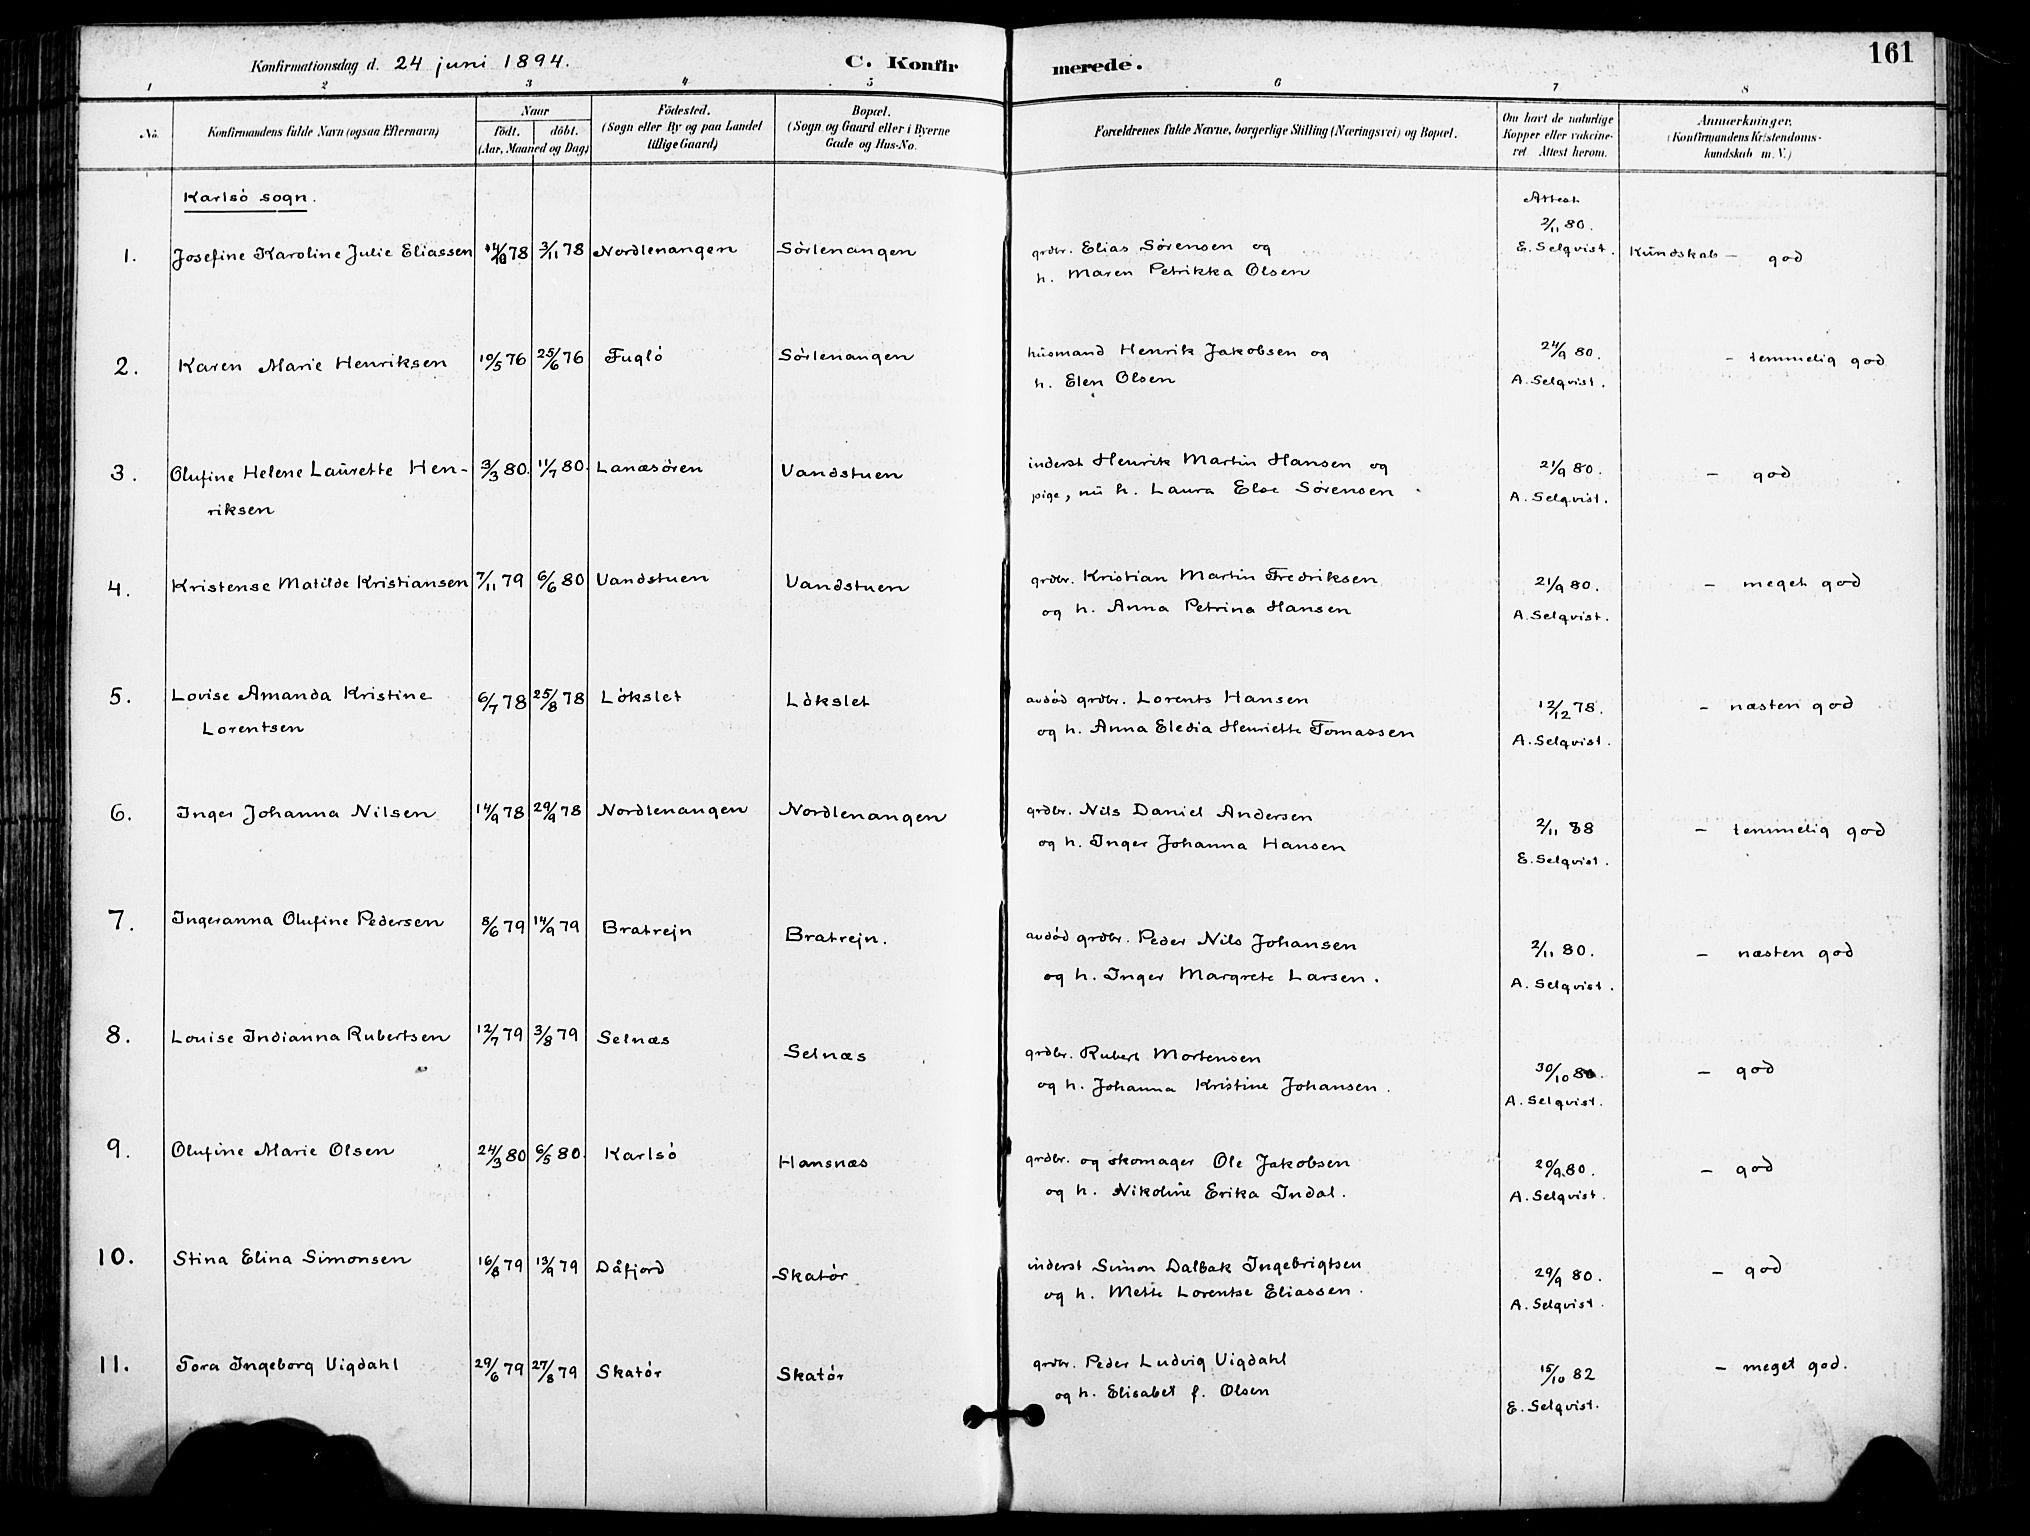 Konfirmationsdag d. 24 juni 1894. C. Konfirmerede. 161
1 2 3 4 5 6 7 8
No. Konfirmandens fulde Navn (ogsaa Efternavn) Naar født. døbt. (Aar, Maaned og Dag) Fødested. (Sogn eller By og paa Landet tillige Gaard) Bopæl. (Sogn og Gaard eller i Byerne Gade og Hus-No. Forældrenes fulde Navne, borgerlige Stilling (Næringsvei) og Bopæl. Om havt de naturlige Kopper eller vakcineret Attest herom. Anmærkninger. (Konfirmandens Kristendomskundskab m. V.)
Karlsö sogn. Attest
2/11 80.
1. Josefine Karoline Julie Eliassen 78 3/11 78 Nordlenangen Sörlenangen grdbr. Elias Sørensen og E. Selqvist. Kundskab – god
h. Maren Petrikka Olsen
2. Karen Marie Henriksen 10/5 76 25/6 76 Fuglö Sörlenangen husmand Henrik Jakobsen og 24/9 80. – temmelig god
h. Elen Olsen A. Selqvist.
3. Olufine Helene Laurette Hen- 3/3 80. 11/7 80. Lanæsören Vandstuen inderst Henrik Martin Hansen og 21/9 80. – god
riksen pige, nu h. Laura Else Sørensen A. Selqvist.
4. Kristense Matilde Kristiansen 7/11 79 6/6 80 Vandstuen Vandstuen grdbr. Kristian Martin Fredriksen 21/9 80. – meget god
og h. Anna Petrina Hansen A. Selqvist.
5. Lovise Amanda Kristine 6/7 78 25/8 78 Lökslet Lökslet avdöd grdbr. Lorents Hansen 12/12 78. – næsten god
Lorentsen og h. Anna Eledia Henriette Tomassen A. Selqvist.
6. Inger Johanna Nilsen 14/9 78 29/9 78 Nordlenangen Nordlenangen grdbr. Nils Daniel Andersen 2/11 88 – temmelig god
og h. Inger Johanna Hansen E. Selqvist.
7. Ingeranna Olufine Pedersen 8/6 79 14/9 79 Bratrejn Bratrejn. avdöd grdbr. Peder Nils Johansen 2/11 80. – næsten god
og h. Inger Margrete Larsen. A. Selqvist.
8. Louise Indianna Rubertsen 12/7 79 3/8 79 Selnæs Selnæs grdbr. Rubert Mortensen 30/10 80. – god
og h. Johanna Kristine Johansen. A. Selqvist.
9. Olufine Marie Olsen 24/3 80 6/5 80. Karlsö Hansnæs grdbr. og skomager Ole Jakobsen 29/9 80. – god
og h. Nikoline Erika Indal. A. Selqvist.
10. Stina Elina Simonsen 16/8 79 13/9 79 Dåfjord Skatør inderst Simon Dalbak Ingebrigtsen 29/9 80. – god
og h. Mette Lorentse Eliassen. A. Selqvist.
11. Tora Ingeborg Vigdahl 29/6 79 27/8 79 Skatør Skatør grdbr. Peder Ludvig Vigdahl 15/10 82 – meget god.
og h. Elisabet f. Olsen E. Selqvist.